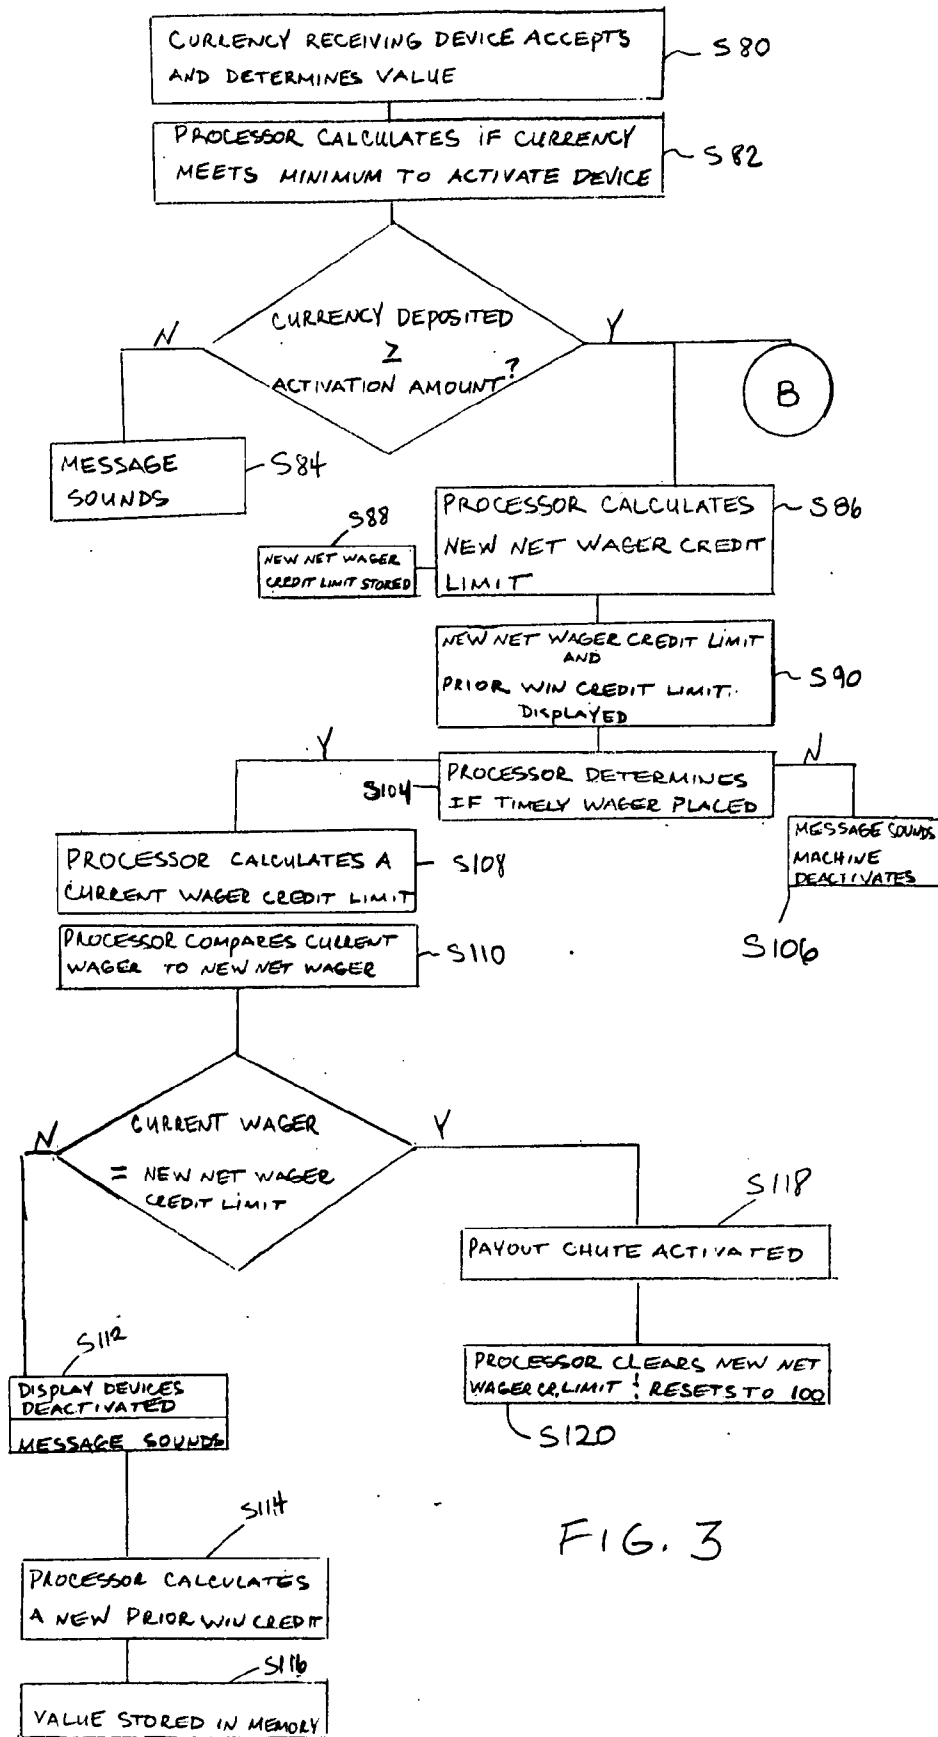 CURRENCY RECEIVING DEVICE ACCEPTS
AND DETERMINES VALUE
S80
PROCESSOR CALCULATES IF CURRENCY
MEETS MINIMUM TO ACTIVATE DEVICE
S82
CURRENCY DEPOSITED
≥
ACTIVATION AMOUNT?
N
Y
B
MESSAGE
SOUNDS
S84
PROCESSOR CALCULATES
NEW NET WAGER CREDIT
LIMIT
S86
S88
NEW NET WAGER
CREDIT LIMIT STORED
NEW NET WAGER CREDIT LIMIT
AND
PRIOR WIN CREDIT LIMIT
DISPLAYED
S90
Y
S104
PROCESSOR DETERMINES
IF TIMELY WAGER PLACED
N
MESSAGE SOUNDS
MACHINE
DEACTIVATES
S106
PROCESSOR CALCULATES A
CURRENT WAGER CREDIT LIMIT
S108
PROCESSOR COMPARES CURRENT
WAGER TO NEW NET WAGER
S110
CURRENT WAGER
= NEW NET WAGER
CREDIT LIMIT
N
Y
S118
PAYOUT CHUTE ACTIVATED
PROCESSOR CLEARS NEW NET
WAGER CR. LIMIT & RESETS TO 100
S120
S112
DISPLAY DEVICES
DEACTIVATED
MESSAGE SOUNDS
S114
PROCESSOR CALCULATES
A NEW PRIOR WIN CREDIT
S116
VALUE STORED IN MEMORY
FIG. 3